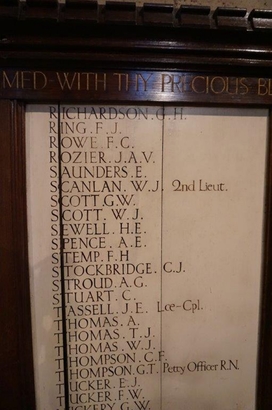 MED·WITH·THY·PRECIOUS·BL
RICHARDSON.G.H.
RING.F.J.
ROWE.F.C.
ROZIER.J.A.V.
SAUNDERS.E.
SCANLAN.W.J. 2nd Lieut.
SCOTT.G.W.
SCOTT.W.J.
SEWELL.H.E.
SPENCE.A.E.
STEMP.F.H
STOCKBRIDGE.C.J.
STROUD.A.G.
STUART.C.
TASSELL.J.E. Lce-Cpl.
THOMAS.A.
THOMAS.T.J.
THOMAS.W.J.
THOMPSON.C.F.
THOMPSON.G.T. Petty Officer R.N.
TUCKER.E.J.
TUCKER.F.W.
VICKERY.G.W.